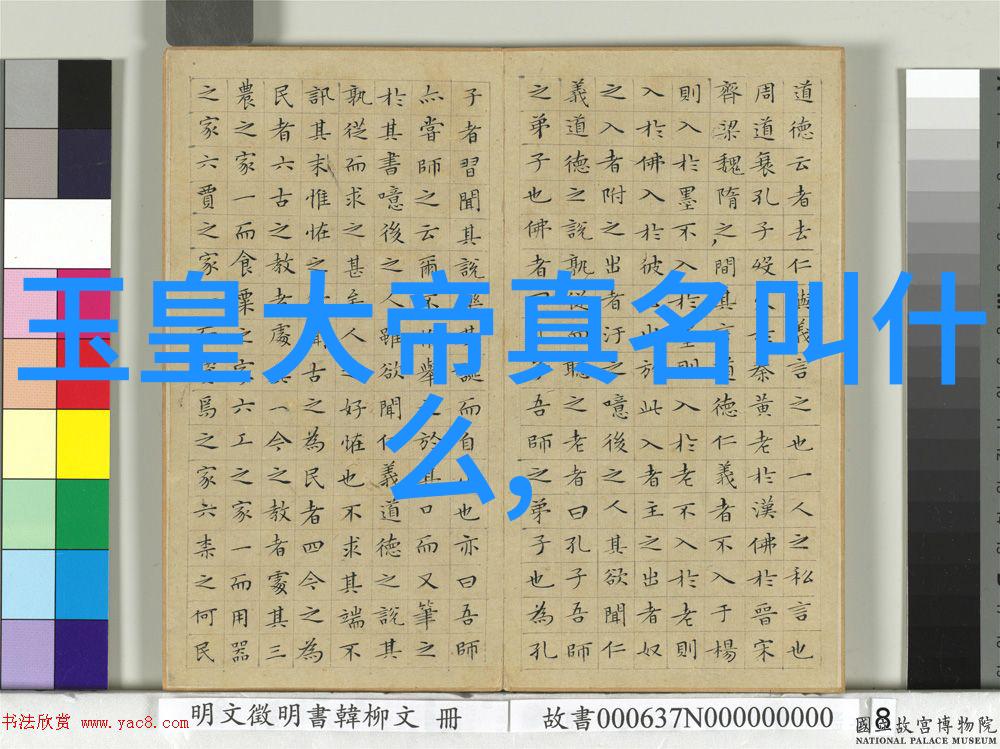 玉皇大帝真名叫什
么,
道德云者去仁與義言之也一人之私言也
周道衰孔子歿火于秦黃老於漢佛於晉宋
齊梁魏隋之間其言道德仁義者不入于楊
則入於墨不入於墨則入於老不入於老則
入於佛入於彼必出於此入者主之出者奴
之入者附之出者汙之噫後之人其欲聞仁
義道德之說孰從而聽之老者曰孔子吾師
之弟子也佛者曰孔子吾師之弟子也為孔
子者習聞其說樂其誕而自小也亦曰吾師
亦嘗師之云爾不惟舉之於其口而又筆之
於其書噫後之人雖欲聞仁義道德之說其
孰從而求之甚矣人之好怪也不求其端不
訊其末惟怪之欲聞古之為民者四今之為
民者六古之教者處其一今之教者處其三
農之家一而食粟之家六工之家一而用器
之家六賈之家一而資焉之家六柰之何民
明文徵明書韓柳文 冊
故書000637N000000000
8
书法欣赏 www.yac8.com
國立故宮博物院
NATIONAL PALACE MUSEUM